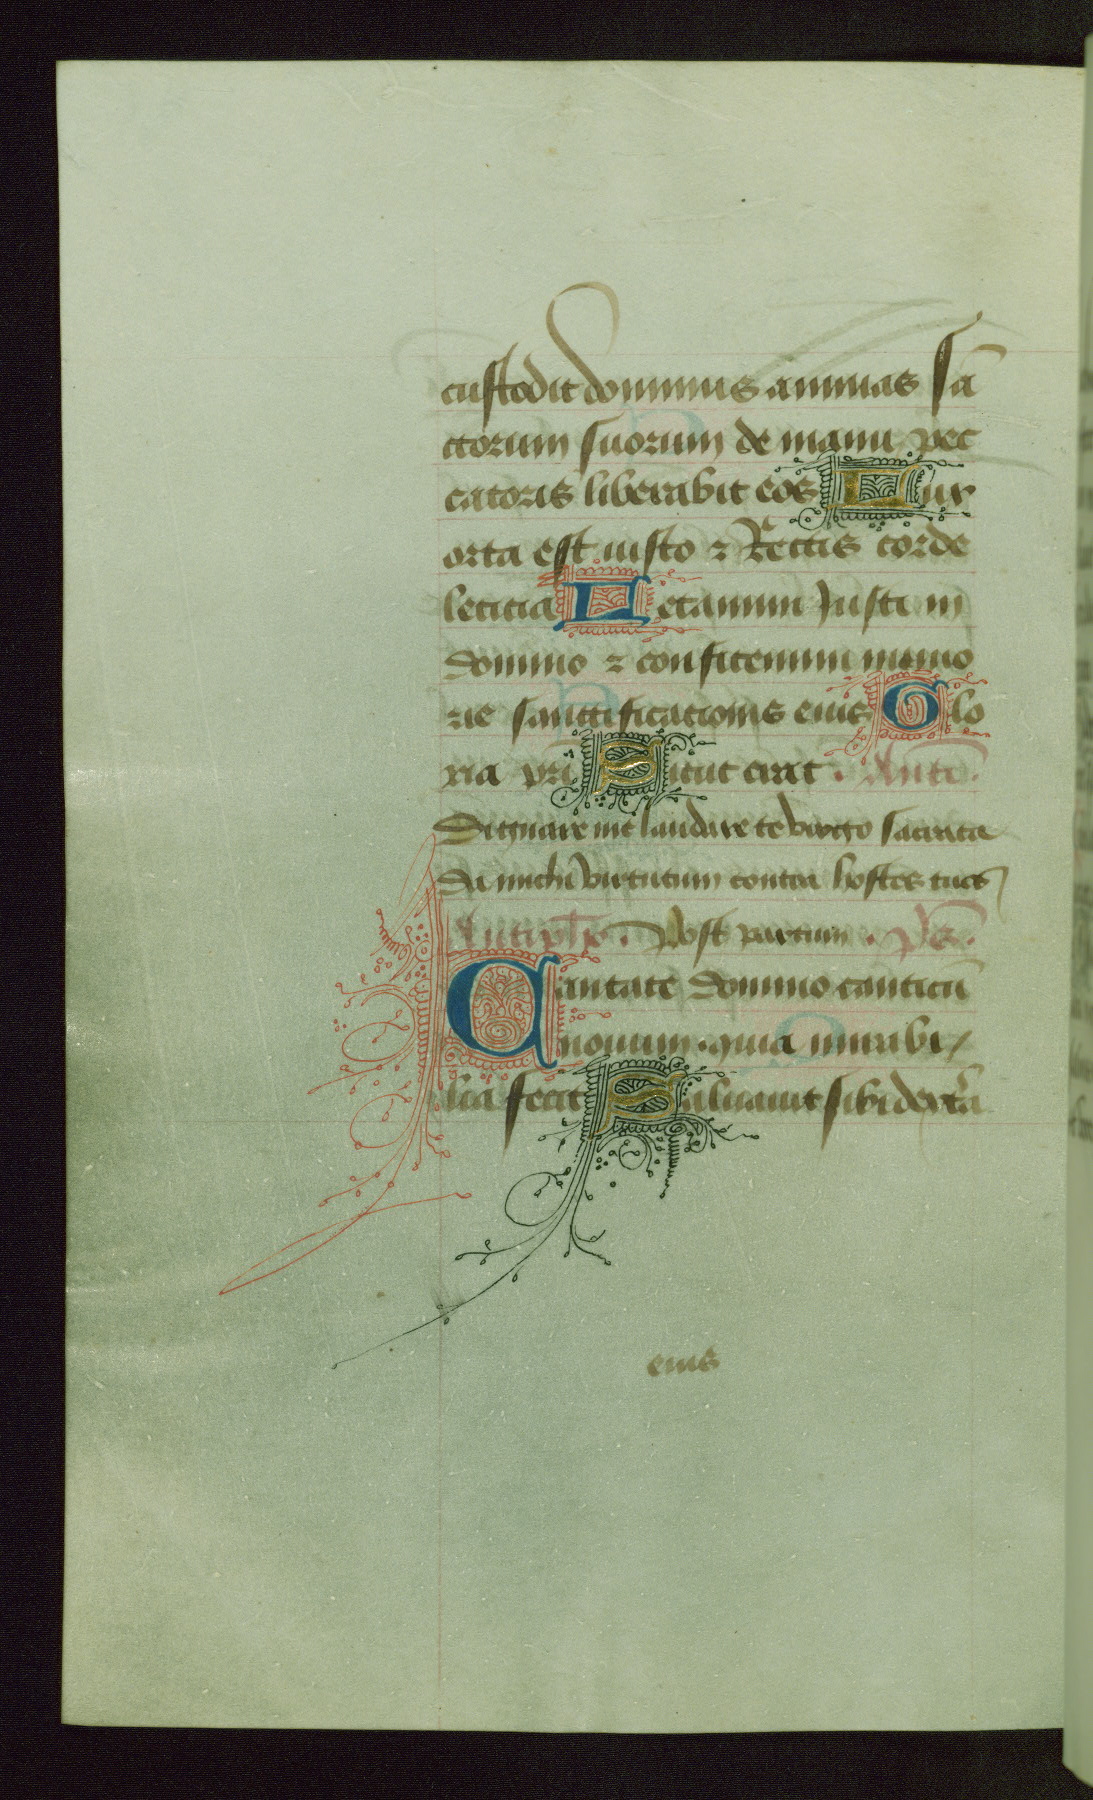 custodit dominus animas sā
ctorum suorum de manu pec
catoris liberabit eos Lux
orta est iusto ⁊ Rectis corde
leticia Letamini Justi in
domino ⁊ confitemini memo
rie sanctificationis eius Glo
ria pr̄i Sicut erat . Ante.
Dignare me laudare te virgo sacrata
da michi virtutem contra hostes tuos
Antiphe . Post partum . Ps̄.
Cantate domino canticū
nouum . quia mirabi
lia fecit Saluauit sibi dext̄a
eius